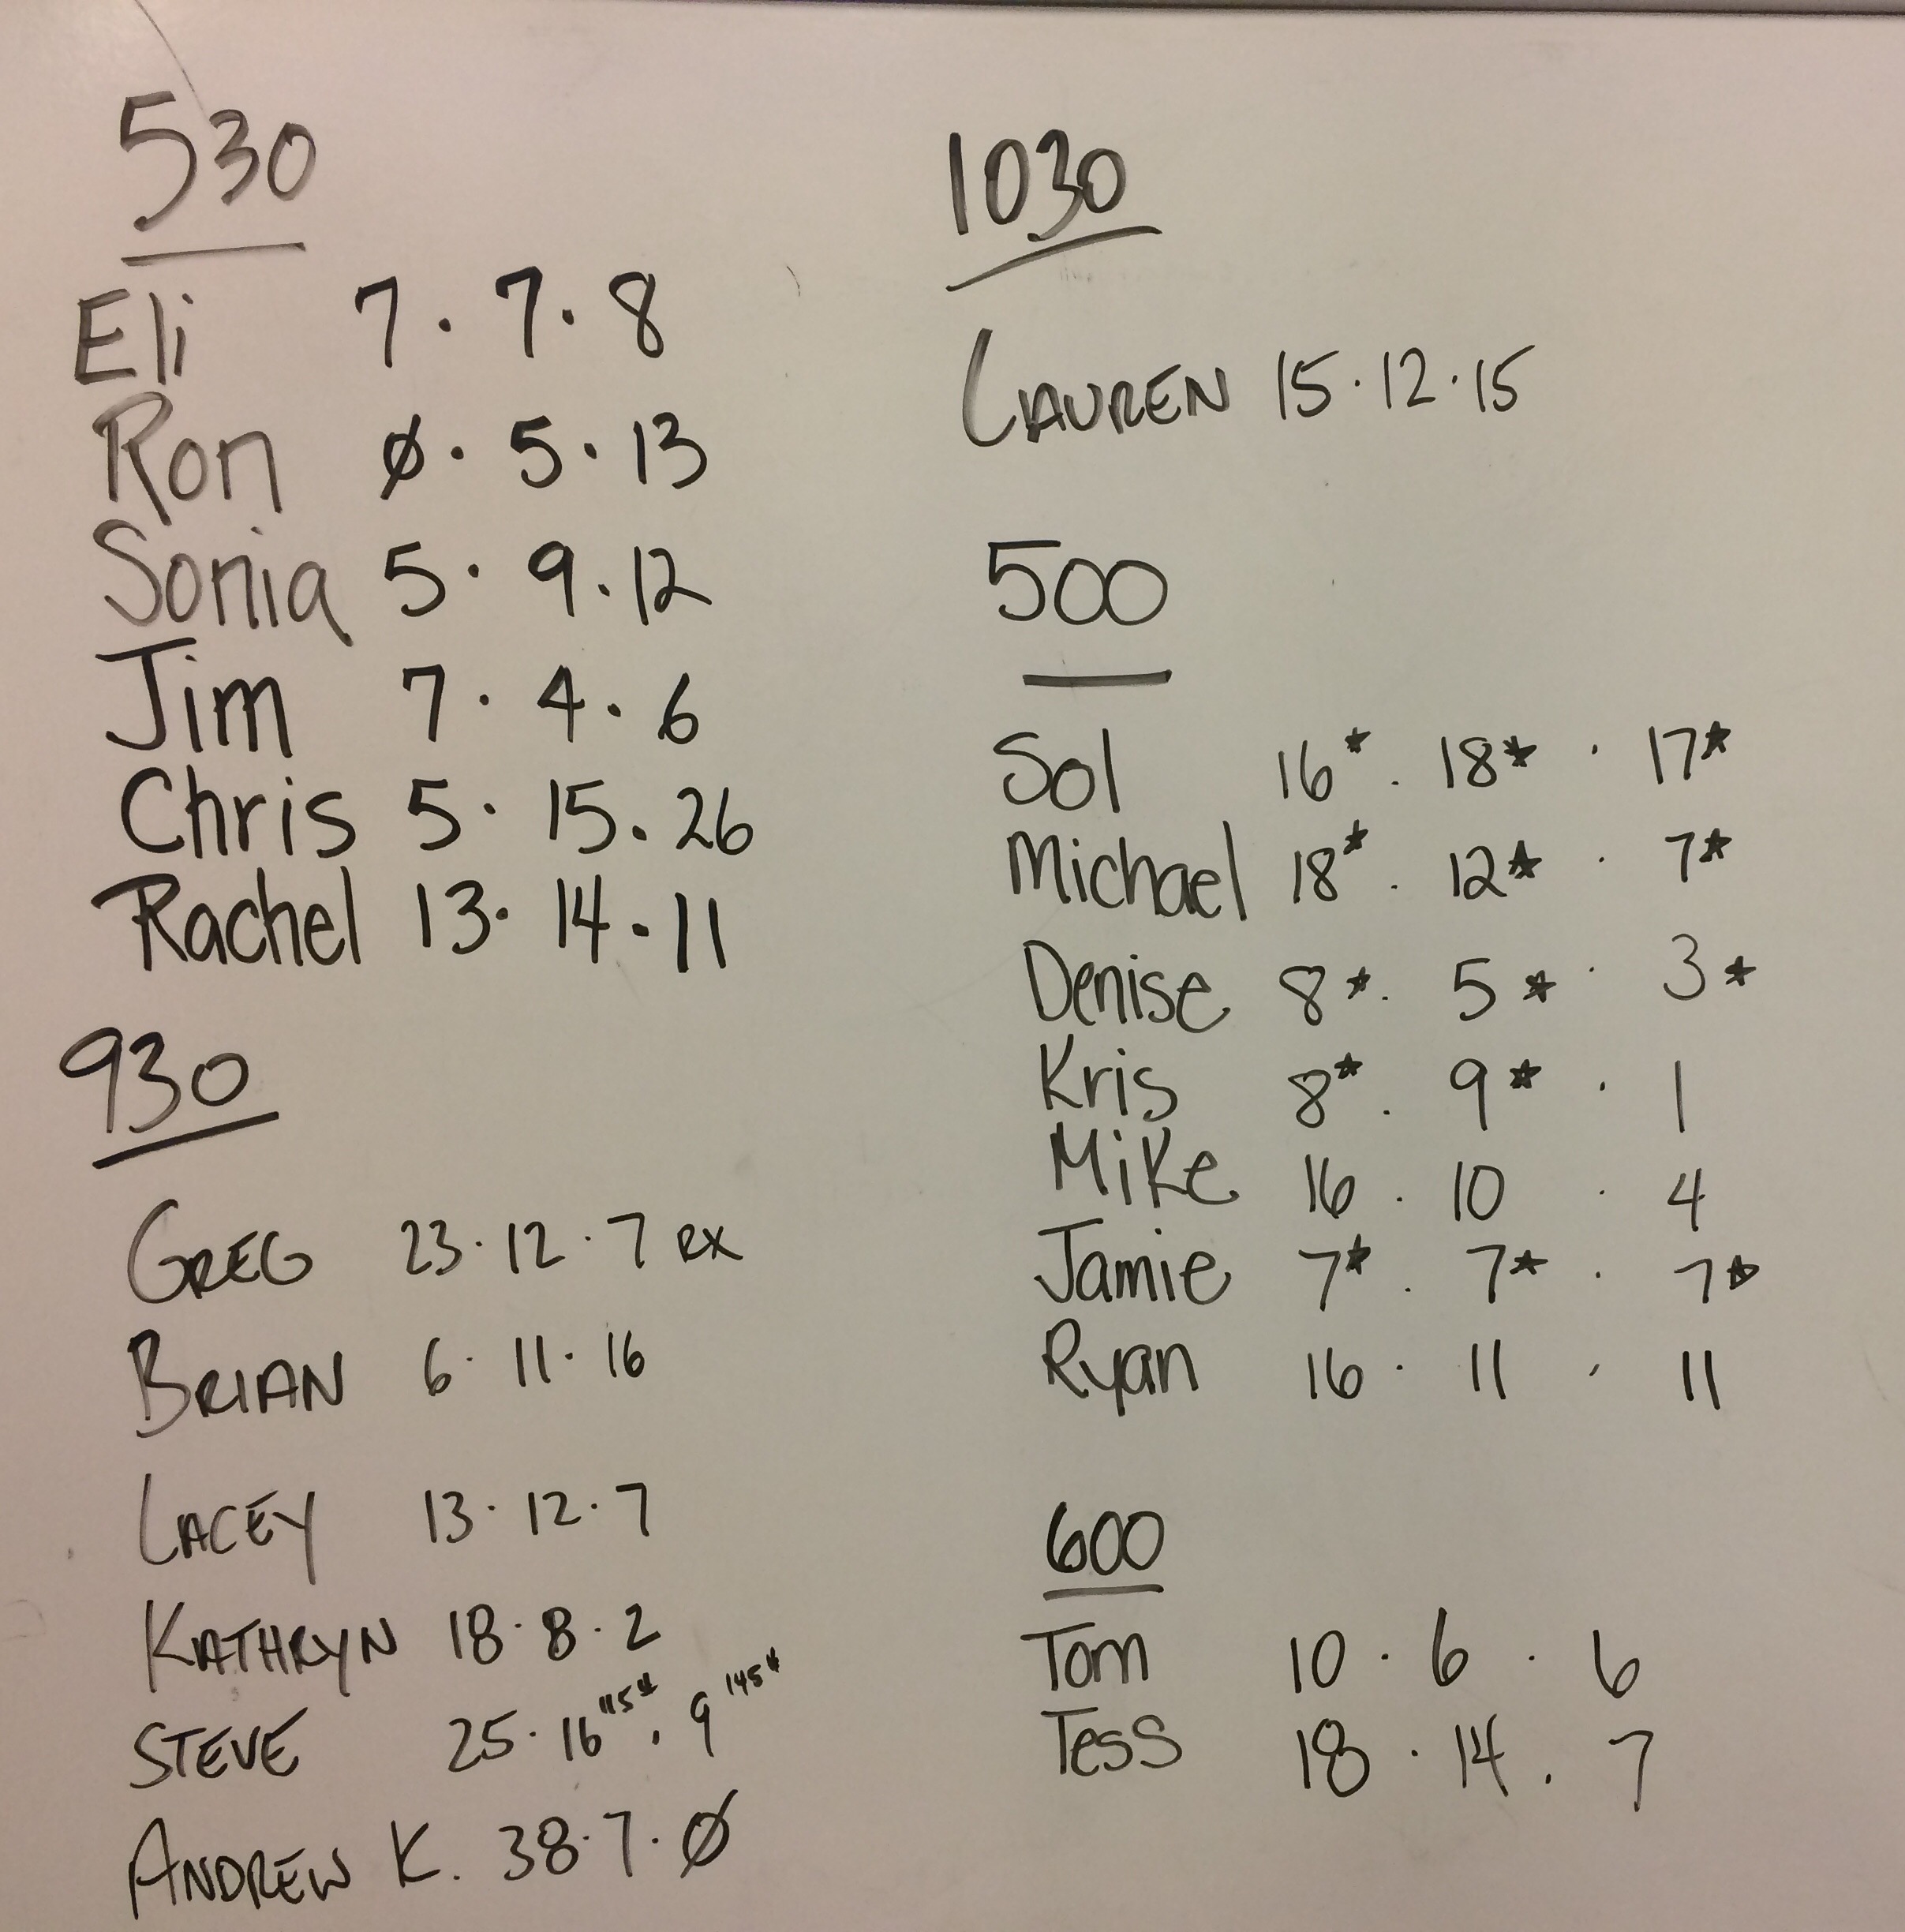 530
Eli 7 · 7 · 8
Ron Ø · 5 · 13
Sonia 5 · 9 · 12
Jim 7 · 4 · 6
Chris 5 · 15 · 26
Rachel 13 · 14 · 11
930
GREG 23 · 12 · 7 RX
BRIAN 6 · 11 · 16
LACEY 13 · 12 · 7
KATHRYN 18 · 8 · 2
STEVE 25 · 16 115# · 9 145#
ANDREW K. 38 · 7 · Ø
1030
LAUREN 15 · 12 · 15
500
Sol 16* · 18* · 17*
Michael 18* · 12* · 7*
Denise 8* · 5* · 3*
Kris 8* · 9* · 1
Mike 16 · 10 · 4
Jamie 7* · 7* · 7*
Ryan 16 · 11 · 11
600
Tom 10 · 6 · 6
Tess 18 · 14 · 7